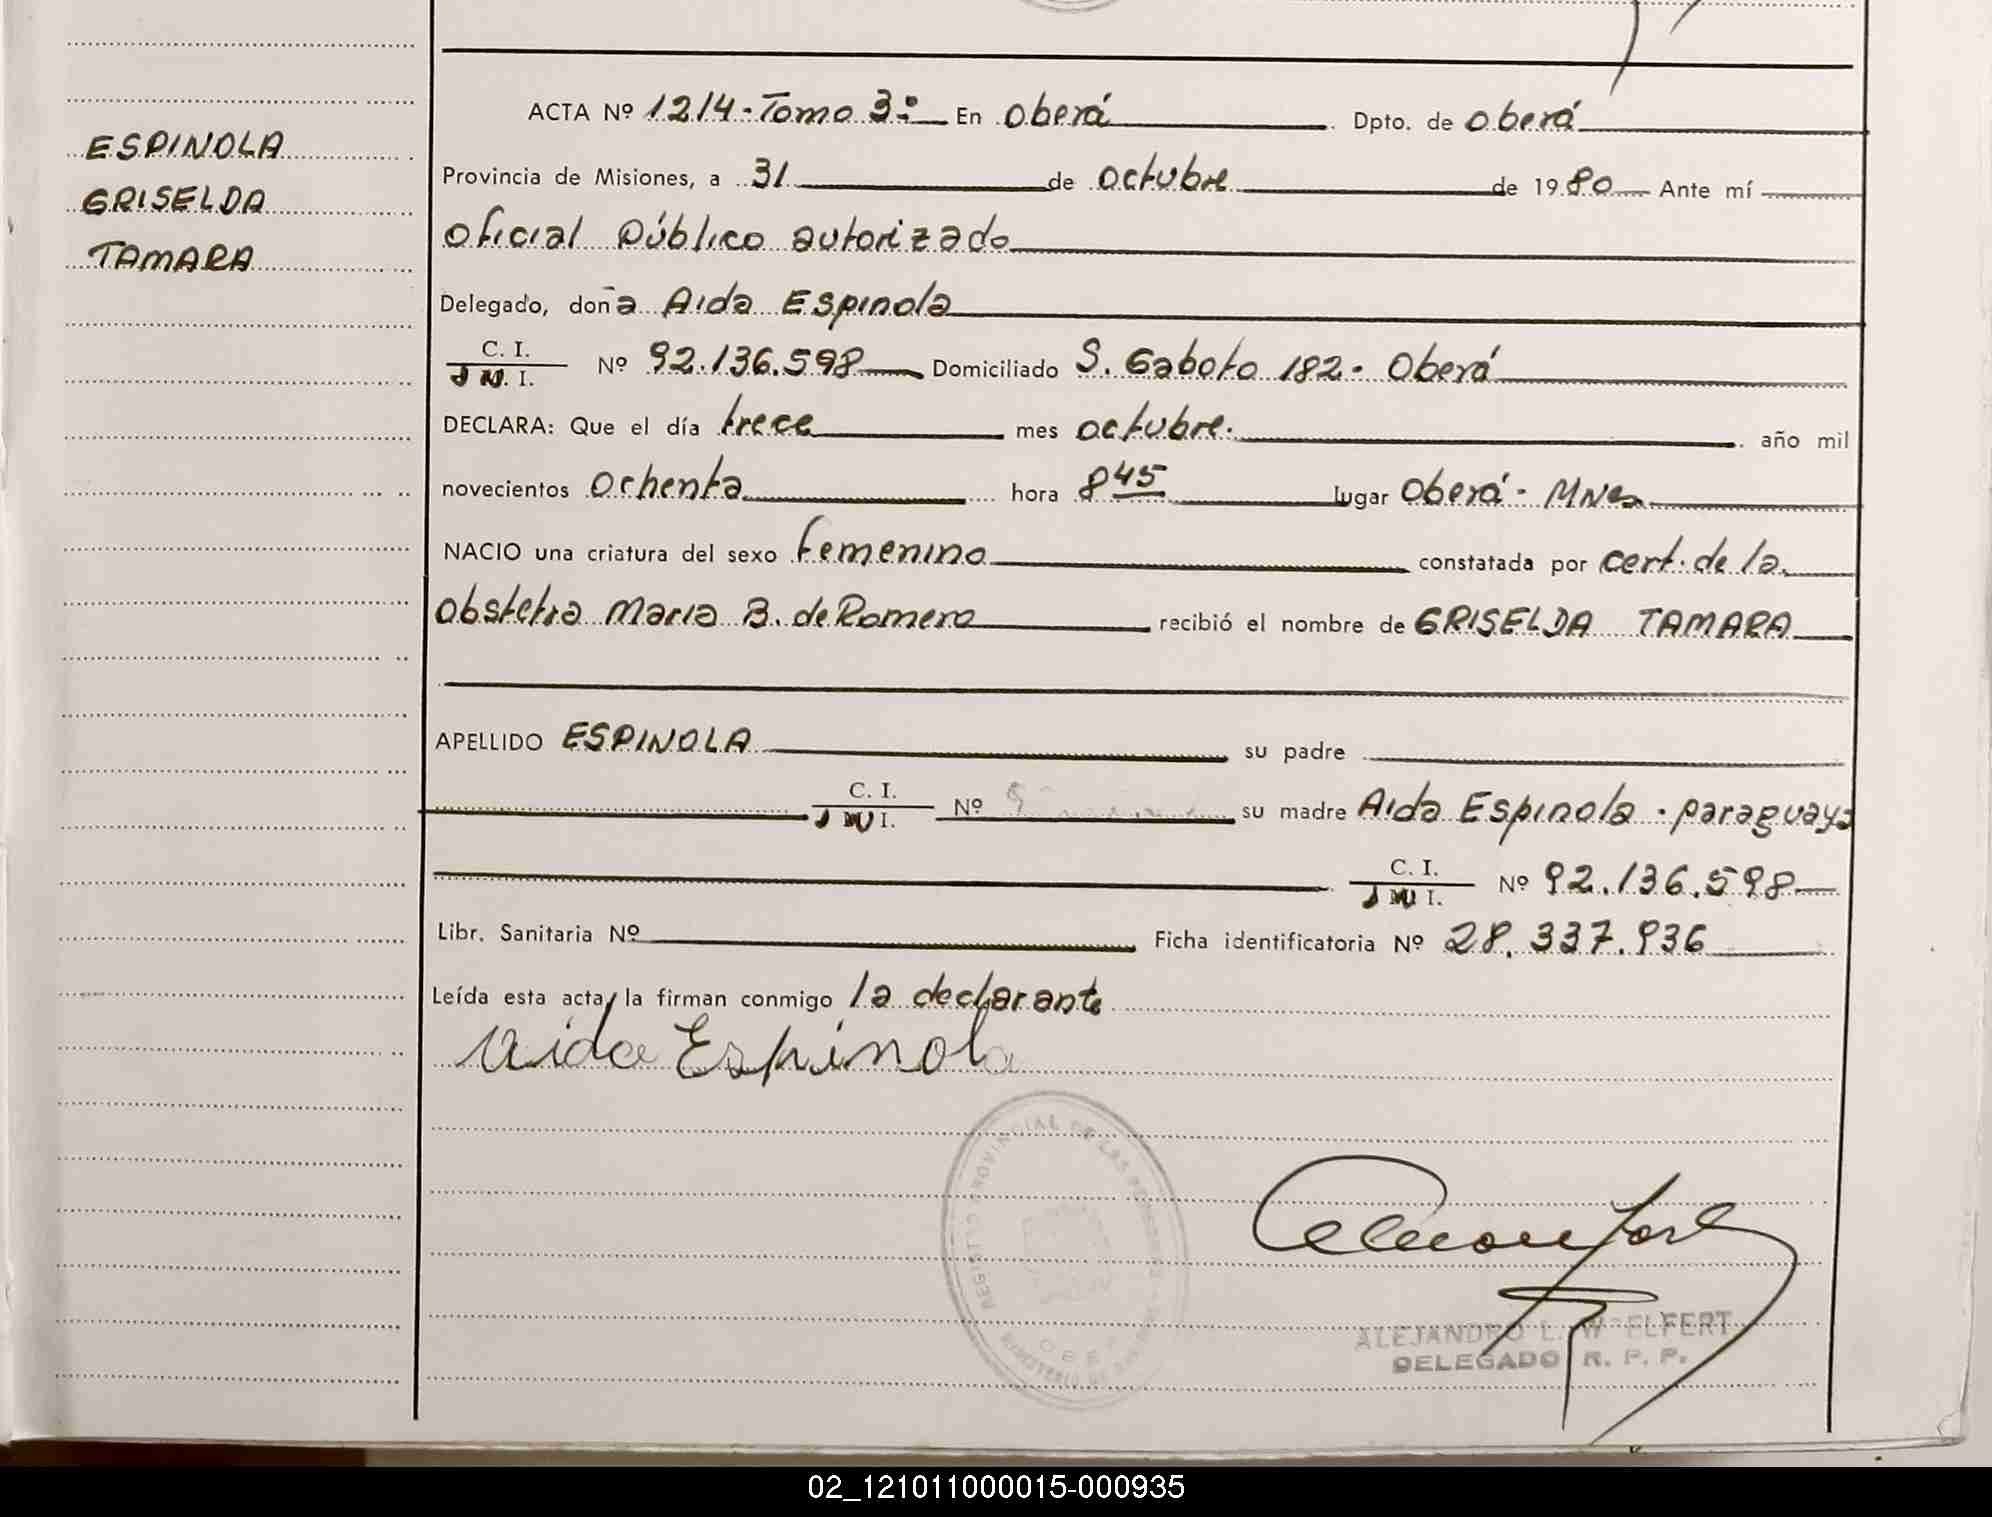 ESPINOLA
GRISELDA
TAMARA
ACTA Nº 1214-Tomo 3º En Oberá Dpto. de Oberá
Provincia de Misiones, a 31 de octubre de 1980 Ante mí
Oficial Público autorizado
Delegado, doña Aida Espinola
C. I. Nº 92.136.598 Domiciliado S. Gaboto 182- Oberá
DECLARA: Que el día trece mes octubre. año mil
novecientos ochenta hora 8 45 lugar Oberá- Mnes
NACIO una criatura del sexo femenino constatada por cert. de la
Obstetra Maria B. de Romero recibió el nombre de GRISELDA TAMARA
APELLIDO ESPINOLA su padre
C. I. Nº su madre Aida Espinola - paraguaya
C. I. Nº 92.136.598
Libr. Sanitaria Nº Ficha identificatoria Nº 28.337.936
Leída esta acta, la firman conmigo la declarante
Aida Espinola
REGISTRO PROVINCIAL DE LAS PERSONAS
ALEJANDRO L. DELEGADO R. P. P.
02_121011000015-000935